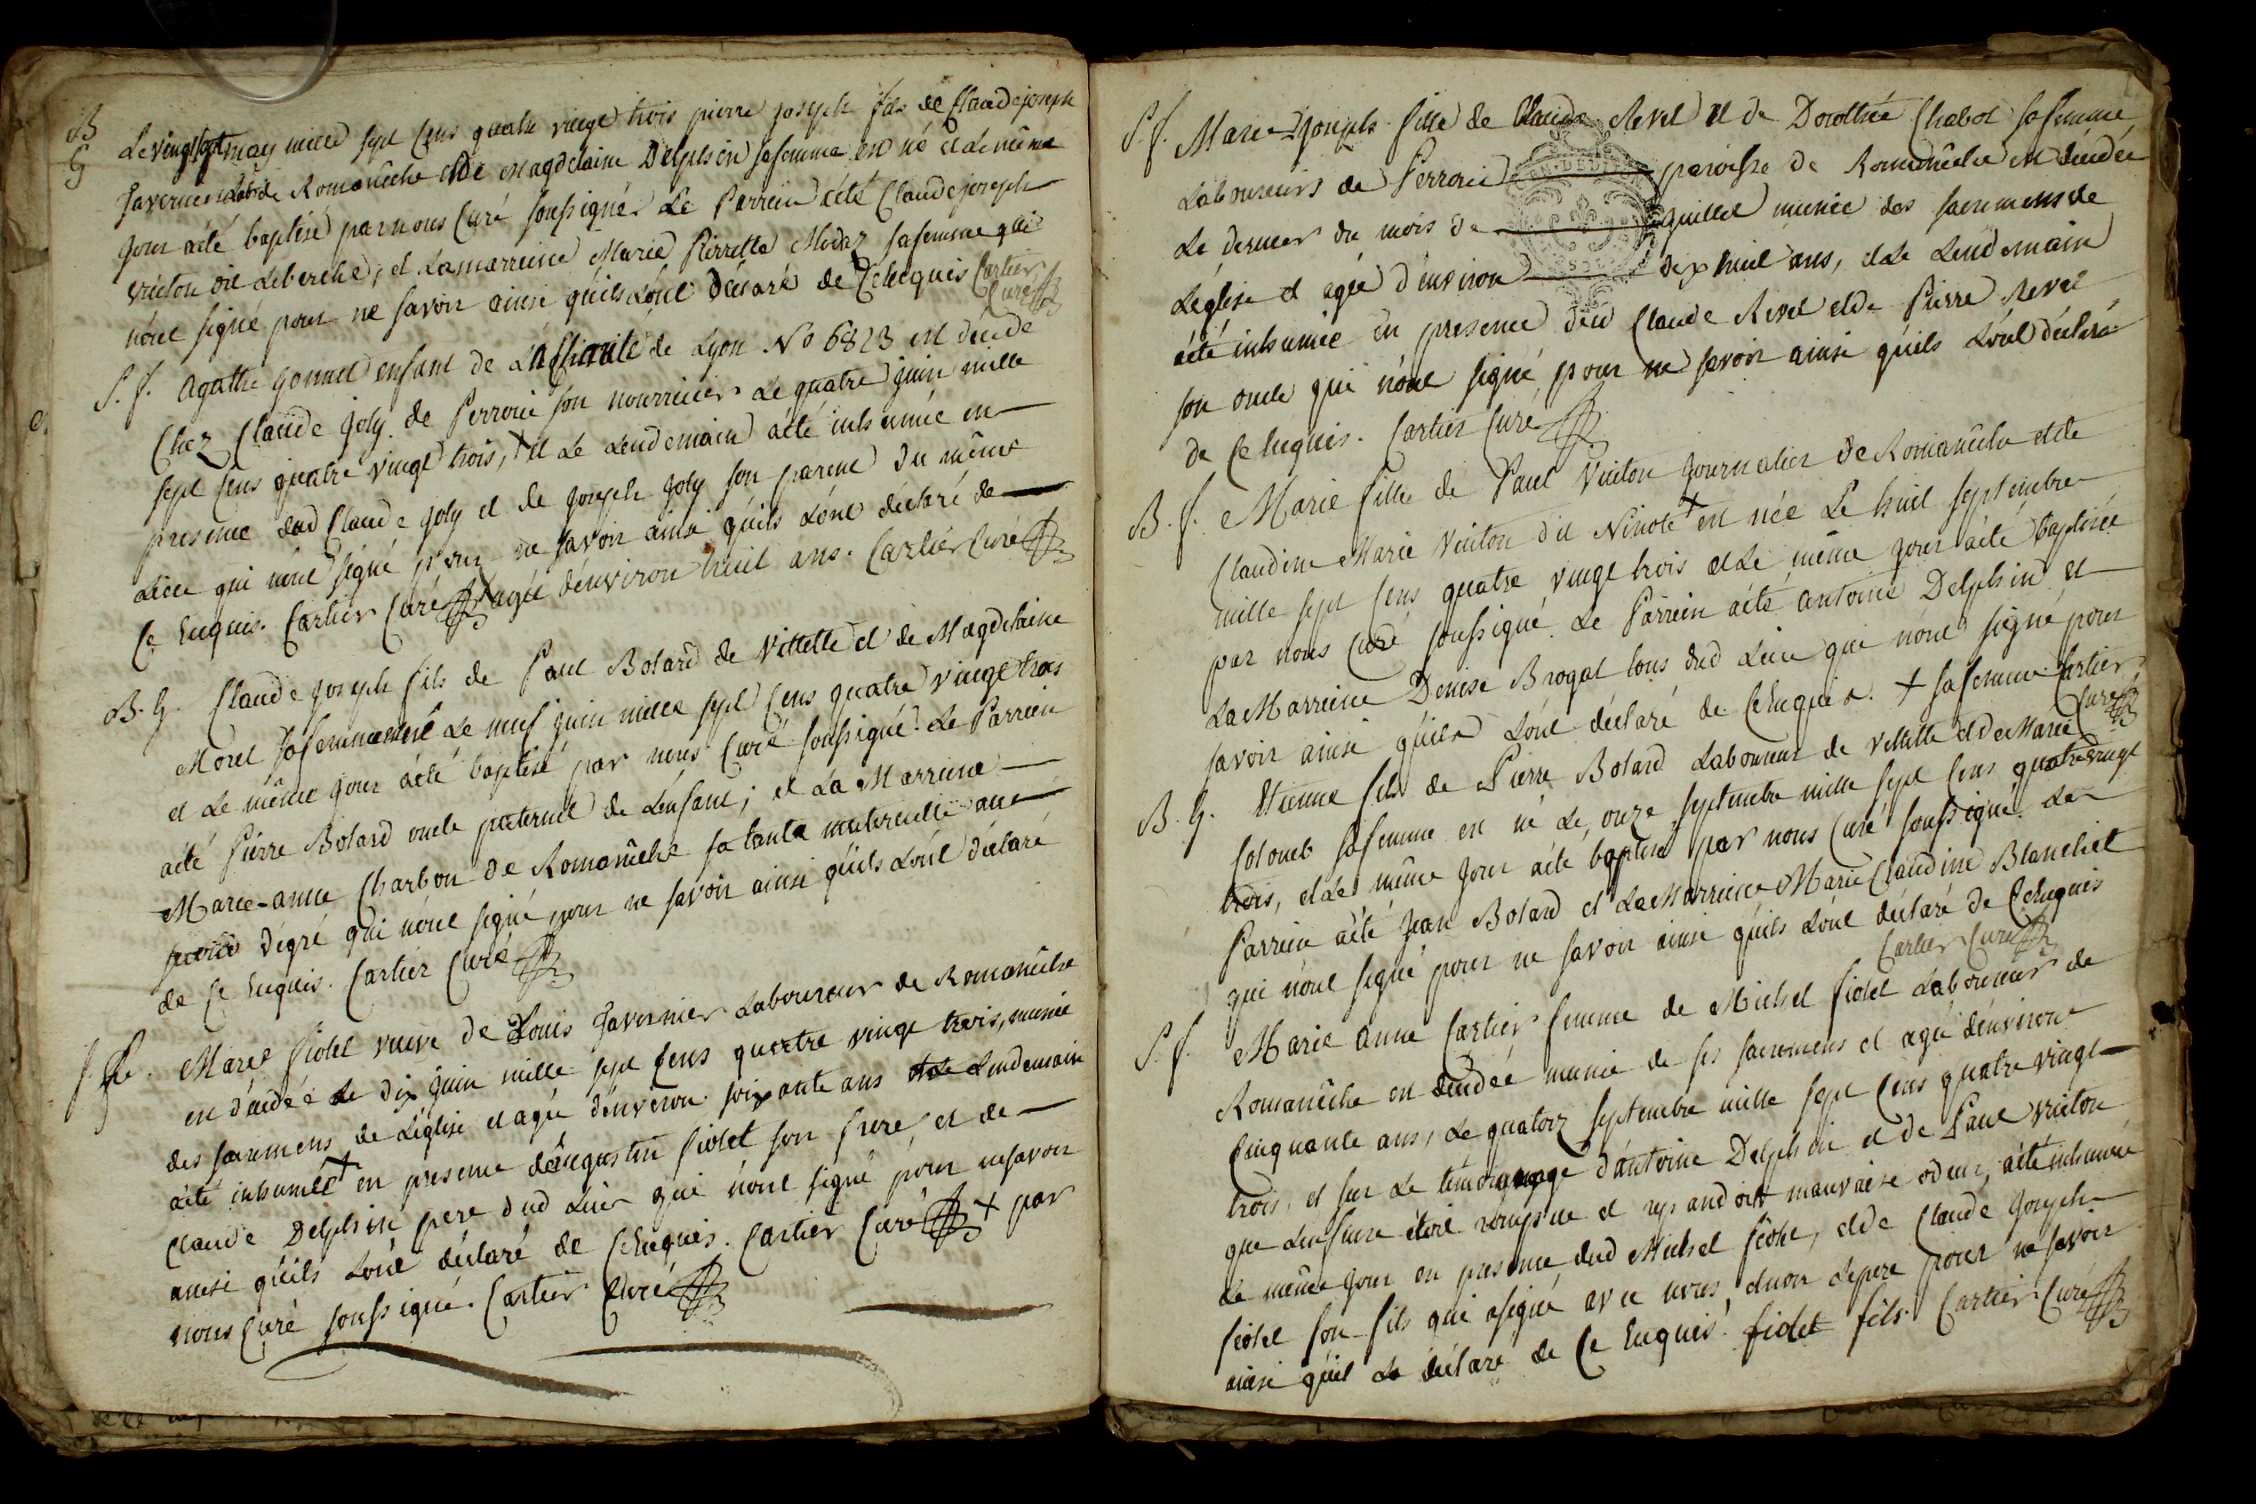 B
G
Le vingt sept may mille sept cens quatre vingt trois pierre joseph fils de Claude joseph
Tavernier Labr de Romanêche et de Magdelaine Delphin sa femme est né et le même
jour a été baptisé par nous Curé soussigné. Le Parrein a été Claude joseph
vuiton dit Leberche, et La marreine Marie Pierrette sa femme qui
n'ont signé pour ne savoir ainsi qu'ils L'ont déclaré de ce Enquis Cartier
Curé
S. f. Agathe enfant de La charité de Lyon No 6823 est décédé
Chez Claude Joly de Perroui son nourricier Le quatre juin mille
sept cens quatre vingt trois, + et Le Lendemain a été inhumée en
presence dud Claude Joly et de Joseph Joly son parent du même
Lieu qui n'ont signé pour ne savoir ainsi qu'ils L'ont déclaré de
ce Enquis. Cartier Curé + agée d'environ huit ans. Cartier Curé
B. G. Claude joseph fils de Paul Botard de Villette et de Magdelaine
Morel sa femme est né Le neuf juin mille sept cens quatre vingt trois
et Le même jour a été baptisé par nous Curé soussigné. Le Parrein
a été Pierre Botard oncle paternel de L'enfant; et La Marreine
Marie-anne Charbon de Romanêche sa tante maternelle au
dégré qui n'ont signé pour ne savoir ainsi qu'ils L'ont déclaré
de ce Enquis. Cartier Curé
S. f. Marie fiolet veuve de Louis Tavernier Laboureur de Romanêche
est décédée Le dix juin mille sept cens quatre vingt trois, munie
des sacremens de L'église et agée d'environ soixante ans et Le Lendemain
a été inhumée + en presence d'augustin fiolet son frere, et de
Claude Delphin pere dud Lieu qui n'ont signé pour ne savoir
ainsi qu'ils L'ont déclaré de ce Enquis. Cartier Curé + par
nous Curé soussigné. Cartier Curé
S. f. Marie Joseph fille de Claude Revel et de Dorothée Chabot sa femme
Laboureurs de Perroui paroisse de Romanêche est décédée
Le dernier du mois de juillet munie des sacremens de
L'église et agée d'environ dix huit ans, et Le Lendemain
a été inhumée en presence dud Claude Revel et de Pierre Revel
son oncle qui n'ont signé pour ne savoir ainsi qu'ils L'ont déclaré
de ce Enquis. Cartier Curé
B. f. Marie fille de Paul Vuiton Journalier de Romanêche et de
Claudine Marie Vuiton dit Ninote + est née Le huit septembre
mille sept cens quatre vingt trois et Le même jour a été baptisée
par nous Curé soussigné. Le Parrein a été antoine Delphin et
La Marreine Denise Brogat tous dud Lieu qui n'ont signé pour
savoir ainsi qu'ils L'ont déclaré de ce Enquis. + sa femme Cartier
Curé
B. G. Etienne fils de Pierre Botard Laboureur de Villette et de Marie
Colomb sa femme est né Le onze septembre mille sept cens quatre vingt
trois, et Le même jour a été baptisé par nous Curé soussigné. Le
Parrein a été Jean Botard et La Marreine Marie Claudine Blanchet
qui n'ont signé pour ne savoir ainsi qu'ils L'ont déclaré de ce Enquis
Cartier Curé
S. f. Marie anne Cartier femme de Michel fiolet Laboureur de
Romanêche est décédée munie de ses sacremens et agée d'environ
Cinquante ans, Le quatorz septembre mille sept cens quatre vingt
trois, et sur Le témoignage d'antoine Delphin et de Paul vuiton
que étoit rompue et repandoit mauvaise odeur, a été inhumée
Le même jour en presence dud Michel fiolet, et de Claude Joseph
fiolet son fils qui a signé avec nous, et non Le pere pour ne savoir
ainsi qu'il La déclaré de ce Enquis. fiolet fils. Cartier Curé